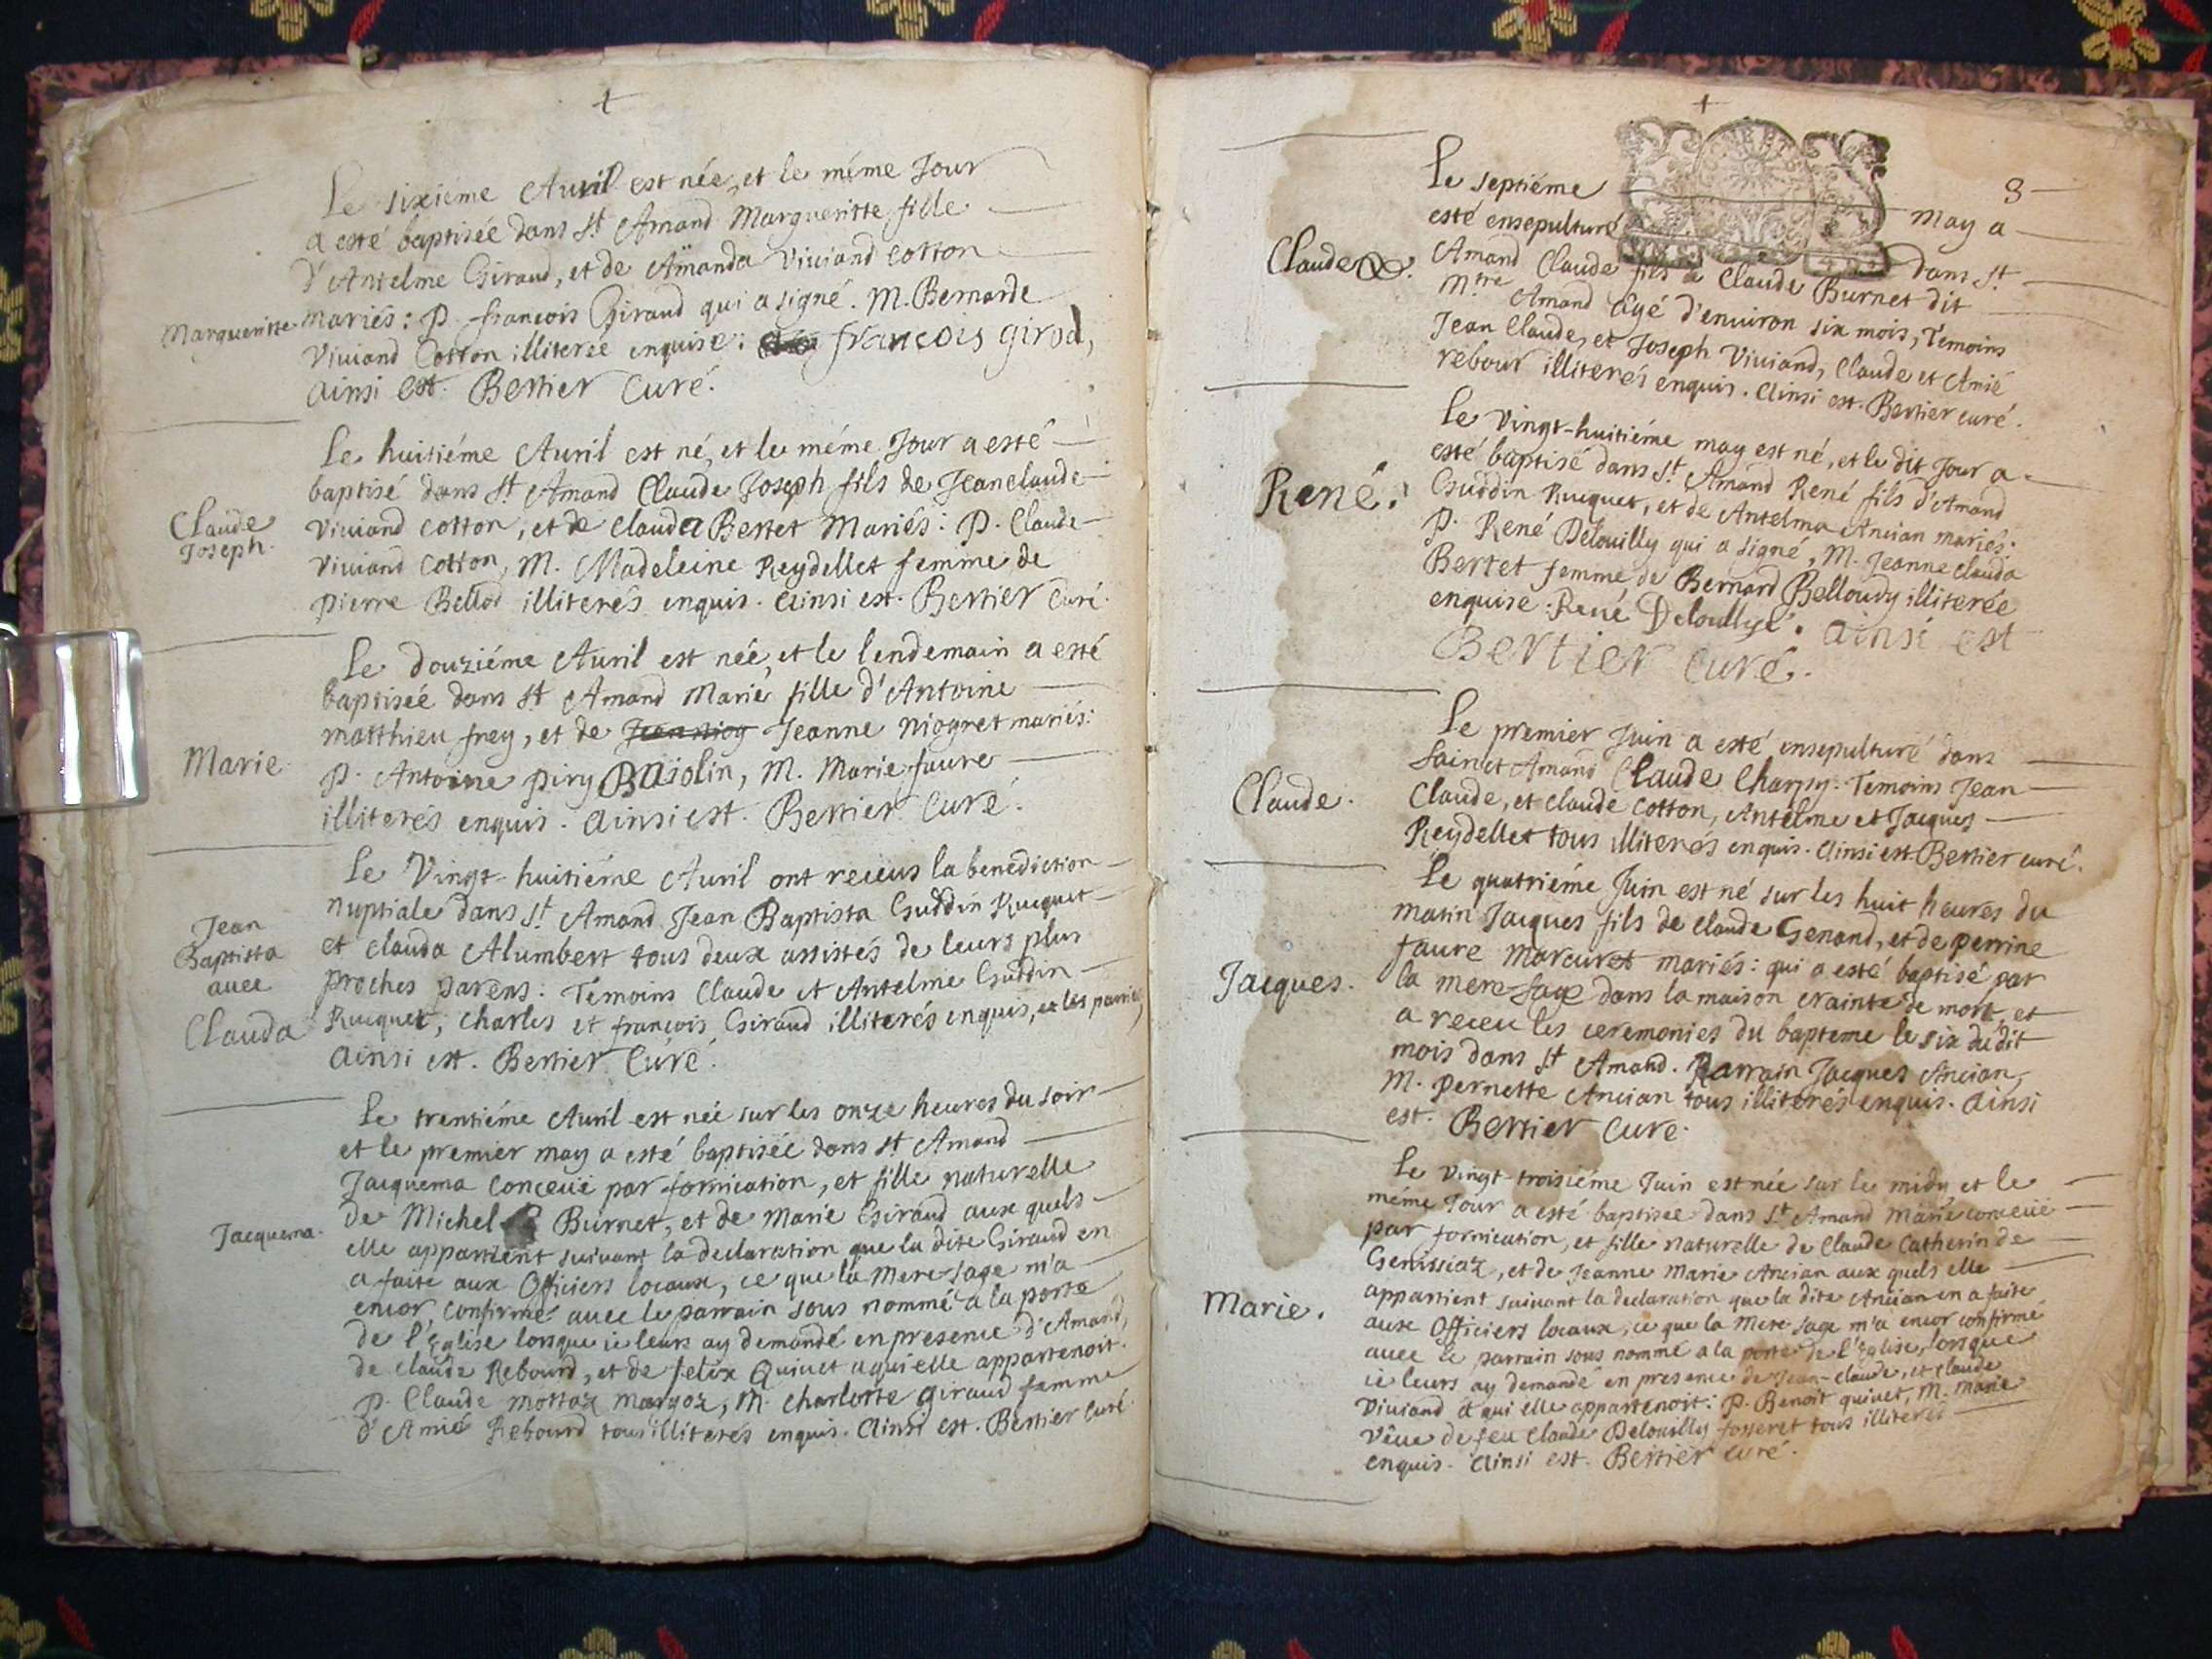 Le sixiéme Auril est née, et le méme Jour
a esté baptisée dans St Amand Margueritte fille
d'Antelme Giraud, et de Amanda Viuiand Cotton
Margueritte mariés: P. françois Giraud qui a signé. M. Bernarde
Viuiand Cotton illiterée enquise: françois girod,
ainsi est. Bertier Curé.
Le huitiéme Auril est né, et le méme Jour a esté
baptisé dans St Amand Claude Joseph fils de Jeanclaude
Claude
Joseph.
Viuiand cotton, et de clauda Bertet Mariés: P. Claude
Viuiand Cotton, M. Madeleine Reydellet femme de
pierre Bellod illiterés enquis. ainsi est. Bertier Curé.
Le douziéme Auril est née, et le lendemain a esté
baptisée dans St Amand Marie, fille d'Antoine
matthieu frey, et de Jeanne niogret mariés:
Marie
P. Antoine piry Bajolin, M. Marie faure
illiterés enquis. ainsi est. Bertier Curé.
Le Vingt-huitiéme Auril ont receus la benediction
nuptiale dans St Amand Jean Baptista Guddin Rucquet
Jean
Baptista
auec
Clauda
et clauda Alumbert tous deux assistés de leurs plus
proches parens: Temoins Claude et Antelme Guddin
Rucquet, charles et françois Giraud illiterés enquis, et les parties,
ainsi est. Bertier Curé.
Le trentiéme Auril est née sur les onze heures du soir
et le premier may a esté baptisée dans St Amand
Jacquema conceüe par fornication, et fille naturelle
Jacquema.
de Michel Burnet, et de Marie Giraud aux quels
elle appartient suiuant la declaration que la dite Giraud en
a faite aux Officiers locaux, ce que la Mere-sage m'a
encor confirmé auec le parrain sous nommé a la porte
de l'Eglise lorsque ie leurs ay demandé en presence d'Amand,
de claude Rebourd, et de felix Quiuet a qui elle appartenoit.
P. Claude mottaz margoz, M. charlotte giraud femme
d'Amié Rebourd tous illiterés enquis. Ainsi est. Bertier Curé.
3
Le septiéme may a
esté ensepulturé dans St
Claude
Amand Claude fils a Claude Burnet dit
Mtre Amand âgé d'enuiron six mois, Temoins
Jean Claude, et Joseph Viuiand, Claude et Amié
rebour illiterés enquis. Ainsi est. Bertier curé.
Le Vingt-huitiéme may est né, et le dit Jour a
esté baptisé dans St Amand René fils d'Amand
René.
Guddin Rucquet, et de Antelma Ancian mariés:
P. René Delouilly qui a signé, M. Jeanne clauda
Bertet femme de Bernard Belloudy illiterée
enquise: René Deloullye. ainsi est
Bertier Curé.
Le premier Juin a esté ensepulturé dans
Sainct Amand Claude Charpy. Temoins Jean
Claude.
Claude, et claude cotton, Antelme et Jacques
Reydellet tous illiterés enquis. Ainsi est Bertier curé.
Le quatriéme Juin est né sur les huit heures du
matin Jacques fils de claude Genand, et de perrine
faure marcuret mariés: qui a esté baptisé par
Jacques.
la mere-sage dans la maison crainte de mort, et
a receu les ceremonies du bapteme le six du dit
mois dans St Amand. Parrain Jacques Ancian,
M. Pernette Ancian tous illiterés enquis. Ainsi
est. Bertier Curé.
Le vingt-troisiéme Juin est née sur le midy et le
méme Jour a esté baptisée dans St Amand Marie conceüe
par fornication, et fille naturelle de Claude Catherin de
Genissiaz, et de Jeanne Marie Ancian aux quels elle
Marie.
appartient suiuant la declaration que la dite Ancian en a faite
aux Officiers locaux, ce que la Mere-sage m'a encor confirmé
auec le parrain sous nommé a la porte de l'Eglise, lorsque
ie leurs ay demandé en presence de Jean-claude, et claude
Viuiand a qui elle appartenoit: P. Benoit quiuet, M. marie
Vêue de feu claude Delouilly fosseret tous illiterés
enquis. Ainsi est. Bertier curé.